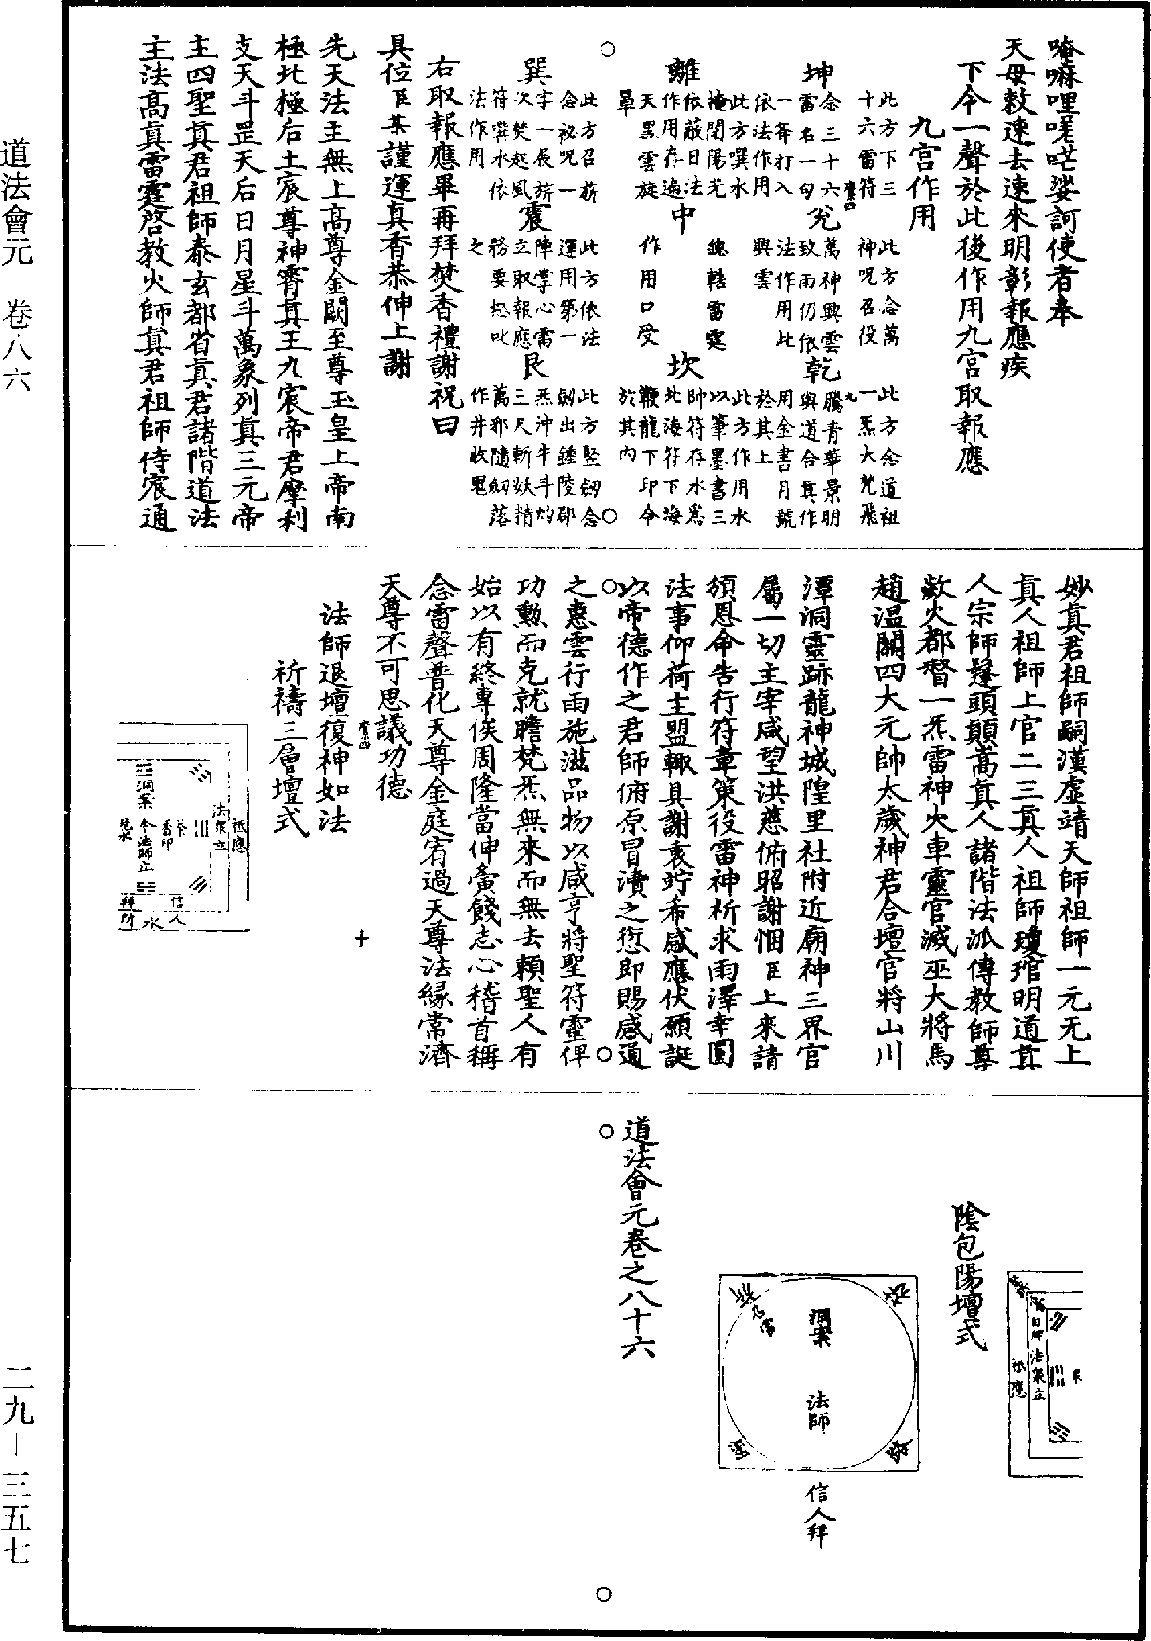 唵嘛哩㗬吣娑訶使者奉
天母敕速去速來明彰報應疾
下令一聲於此後作用九宮取報應
九宮作用
坤
此方下三
十六雷符
念三十六
雷名一句
一奔打入
依法作用
兌
此方念萬
神呪召役
萬神興雲
致雨仍依
法作用此
興雲
乾
此方念道祖
一炁大梵飛
騰青華景明
與道合真作
用金書月號
於其上
離
此方噀水
掩閉陽光
依蔽日法
作用存遍
天黑雲旋
罩
中
總轄雷霆
作用口受
坎
此方作用水
以筆墨書三
帥符存水為
北海符下海
鞭龍下印令
於其內
巽
此方召薪
念祕呪一
字一展旂
次焚起風
符噀水依
法作用
震
此方依法
運用第一
陣掌心雷
立取報應
務要怒叱
之
艮
此方竪劒念
劒出鍾陵郡
炁沖牛斗灼
三尺斬妖精
萬邪隨劒落
作井收鬼
右取報應畢再拜焚香禮謝祝曰
具位臣某謹運真香恭伸上謝
先天法主無上高尊金闕至尊玉皇上帝南
極北極后土宸尊神霄真王九宸帝君摩利
支天斗罡天后日月星斗萬象列真三元帝
主四聖真君祖師泰玄都省真君諸階道法
主法高真雷霆啓教火師真君祖師侍宸通
妙真君祖師嗣漢虛靖天師祖師一元无上
真人祖師上官二三真人祖師瓊琯明道真
人宗師蓬頭顛蒿真人諸階法派傳教師尊
歘火都督一炁雷神火車靈官滅巫大將馬
趙溫關四大元帥太歲神君合壇官將山川
潭洞靈跡龍神城隍里社附近廟神三界官
屬一切主宰咸望洪慈俯昭謝悃臣上來請
頒恩命告行符章策役雷神祈求雨澤幸圓
法事仰荷主盟輙具謝衷竚希感應伏願誕
以帝德作之君師俯原冒瀆之愆即賜感通
之惠雲行雨施滋品物以咸亨將聖符靈俾
功勳而克就瞻梵炁無來而無去賴聖人有
始以有終專俟周隆當伸㫋餞志心稽首稱
念雷聲普化天尊金庭宥過天尊法緣常濟
天尊不可思議功德
法師退壇復神如法
祈禱三層壇式
祗應
法眾立
洞案
令法師立
信人
水
拜所
法眾立
祗應
陰包陽壇式
洞案
法師
信人拜
道法會元卷之八十六
道法會元　卷八六
二九—三五七